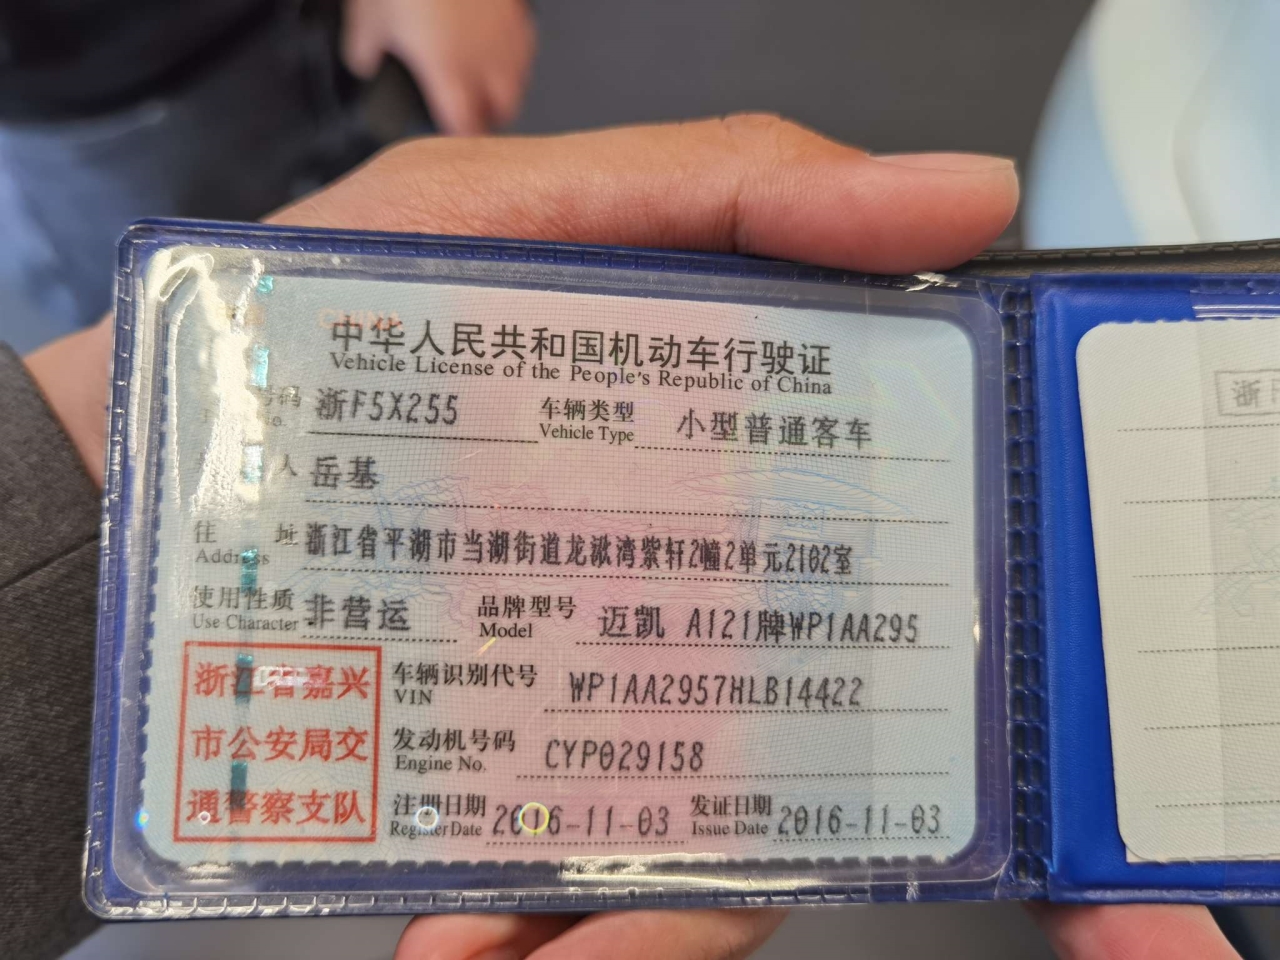 中华人民共和国机动车行驶证
Vehicle License of the People's Republic of China
号码 浙F5X255 车辆类型 小型普通客车
No. Vehicle Type
人 岳基
住 址 浙江省平湖市当湖街道龙湫湾紫轩2幢2单元2102室
Address
使用性质 非营运 品牌型号 迈凯 A121牌WP1AA295
Use Character Model
浙江省嘉兴
市公安局交
通警察支队
车辆识别代号 WP1AA2957HLB14422
VIN
发动机号码 CYP029158
Engine No.
注册日期 2016-11-03 发证日期 2016-11-03
Register Date Issue Date
浙